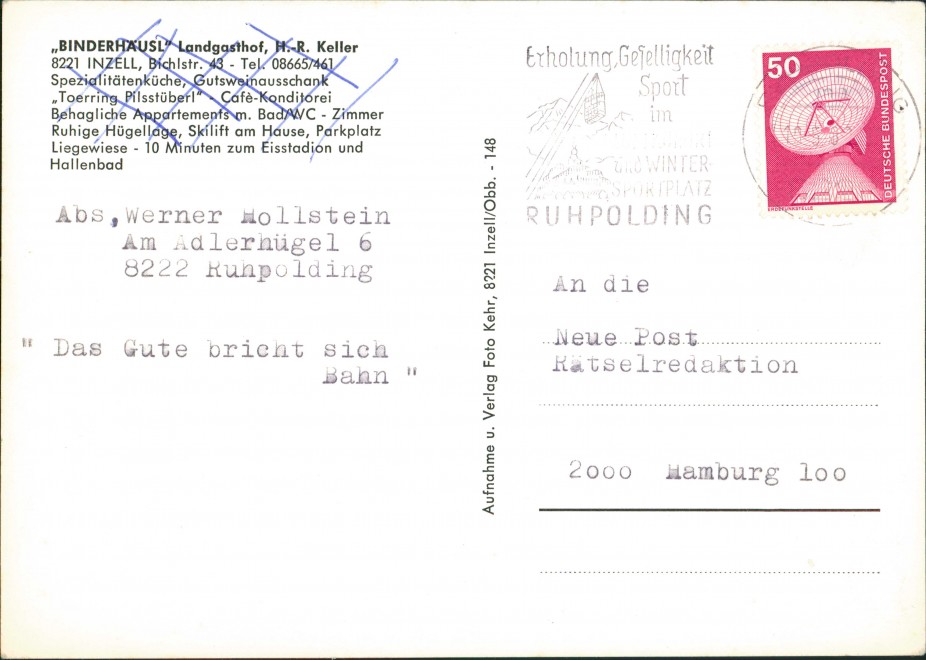 „BINDERHÄUSL" Landgasthof, H.-R. Keller
8221 INZELL, Bichlstr. 43 - Tel. 08665/461
Spezialitätenküche, Gutsweinausschank
„Toerring Pilsstüberl" - Cafè-Konditorei
Behagliche Appartements m. Bad/WC - Zimmer
Ruhige Hügellage, Skilift am Hause, Parkplatz
Liegewiese - 10 Minuten zum Eisstadion und
Hallenbad
Abs,Werner Mollstein
Am Adlerhügel 6
8222 Ruhpolding
" Das Gute bricht sich
Bahn "
Aufnahme u. Verlag Foto Kehr, 8221 Inzell/Obb. - 148
Erholung, Geselligkeit
Sport
im
UND WINTER-
SPORTPLATZ
RUHPOLDING
50
DEUTSCHE BUNDESPOST
ERDEFUNKSTELLE
An die
Neue Post
Rätselredaktion
2000 Hamburg 100